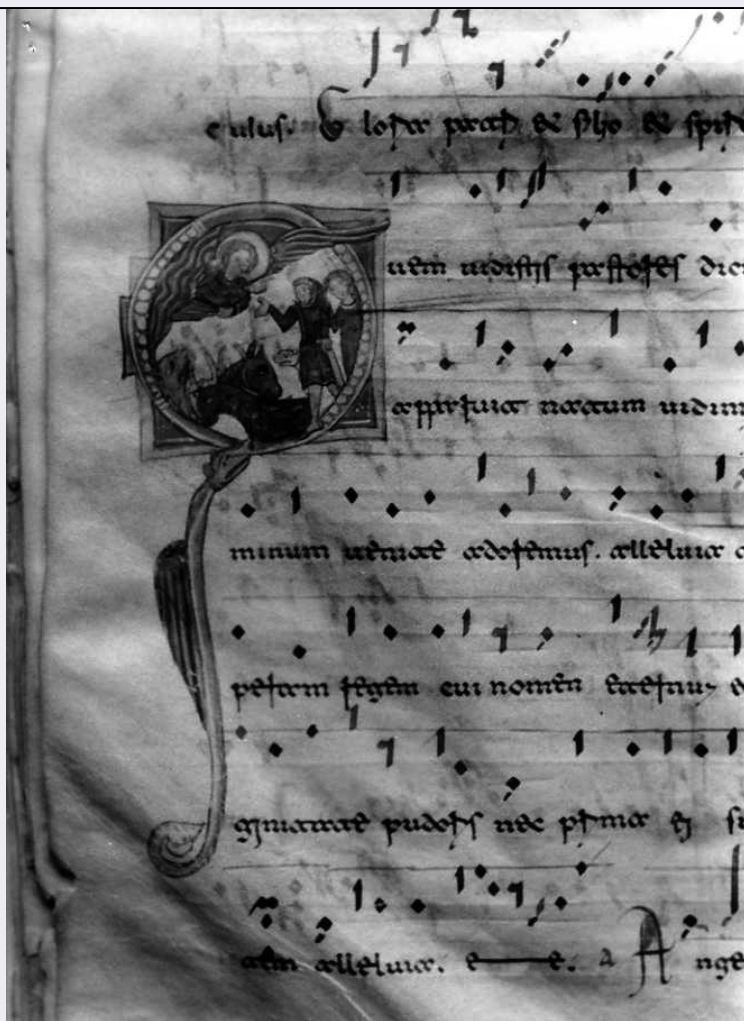 culus. Gloria patri & filio & spirit
Quem uidistis pastores dici
apparuit natum uidim
minum uenite adoremus. alleluia
peram regem cui nomen eternum e
ginitate pudoris nec prima
tem alleluia. e e. a Ange